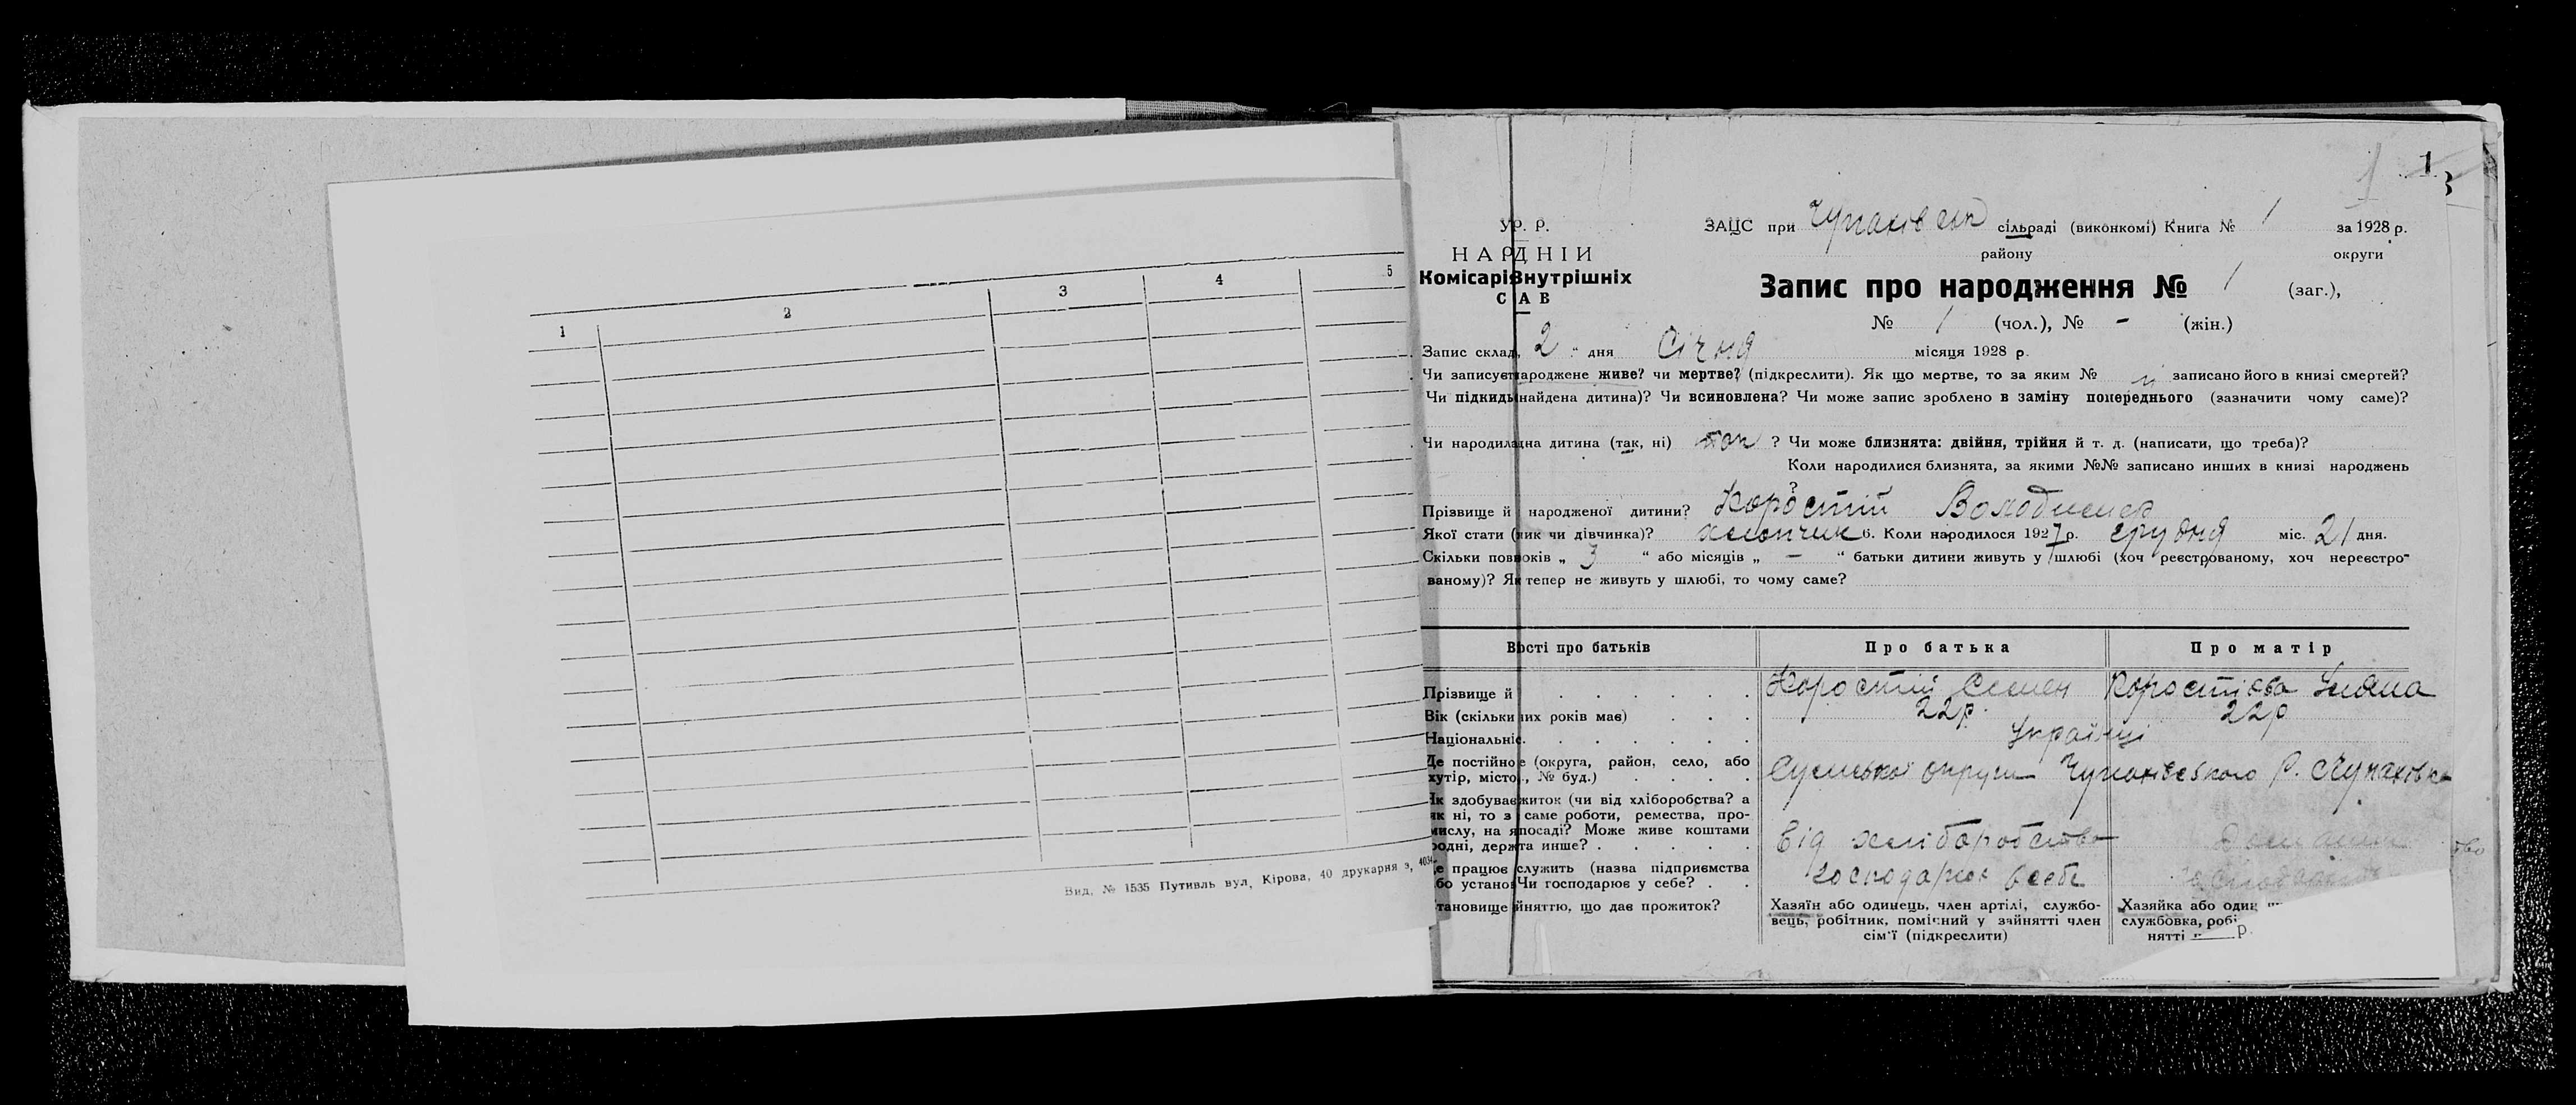 1 2 3 4 5
Вид. № 1535 Путивль вул. Кірова, 40 друкарня з, 4034
1
1
3
УР. Р.
НАРДНІЙ
КомісаріВнутрішніх
САВ
ЗАЦС при Чупахівськ сільраді (виконкомі) Книга № 1 за 1928 р.
району округи
Запис про народження № 1 (заг.),
№ 1 (чол.), № - (жін.)
Запис склад, 2 " дня Січня місяця 1928 р.
Чи записуєтнароджене живе? чи мертве? (підкреслити). Як що мертве, то за яким № записано його в книзі смертей?
Чи підкидь(найдена дитина)? Чи всиновлена? Чи може запис зроблено в заміну попереднього (зазначити чому саме)?
Чи народиладна дитина (так, ні) так ? Чи може близнята: двійня, трійня й т. д. (написати, що треба)?
Коли народилися близнята, за якими №№ записано инших в книзі народжень
?
Прізвище й народженої дитини? Коростій Володимер
Якої стати (чик чи дівчинка)? хлопчик 6. Коли народилося 1927 р. грудня міс. 21 дня.
Скільки повроків „ 3 “ або місяців „ — “ батьки дитини живуть у шлюбі (хоч реєстрованому, хоч нереєстро-
ваному)? Як тепер не живуть у шлюбі, то чому саме?
Вісті про батьків Про батька Про матір
Прізвище й Коростій Семен Коростієва Уляна
Вік (скільки них років має) 22р. 22р
Національніс. Українці
Де постійное (округа, район, село, або
хутір, місто, № буд.) Сумської округи Чупахівського Р. с Чупахівка
Як здобуваєжиток (чи від хліборобства? а
як ні, то з саме роботи, ремества, про-
мислу, на япосаді? Може живе коштами
родні, держта инше? Від хліборобства
Де працює служить (назва підприємства
або установЧи господарює у себе? господарює в себе
тановище йняттю, що дає прожиток? Хазяїн або одинець, член артілі, службо-
вець, робітник, помічний у зайнятті член
сім'ї (підкреслити)
Хазяйка або один
службовка, робі р.
нятті